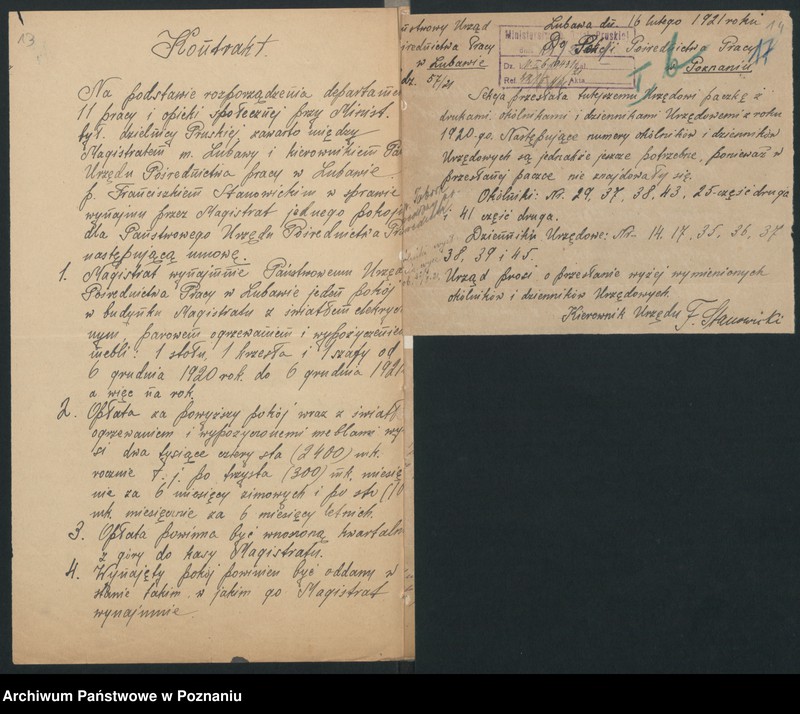 13
Kontrakt.
Na podstawie rozporządzenia departamen
11 pracy i opieki społecznej przy Minist.
był. dzielnicy Pruskiej zawarto między
Magistratem m. Lubawy i kierownikiem Pań
Urzędu Pośrednictwa pracy w Lubawie
p. Franciszkiem Stanowickim w sprawie
wynajmu przez Magistrat jednego pokoju
dla Państwowego Urzędu Pośrednictwa Pra
następującą umowę.
1. Magistrat wynajmnie Państwowemu Urzęd
Pośrednictwa Pracy w Lubawie jeden pokój
w budynku Magistratu z światłem elektrycz
nym, parowem ogrzewaniem i wypożyczeniem
mebli: 1 stołu, 1 krzesła i 1 szafy od
6 grudnia 1920 rok. do 6 grudnia 1921
a więc na rok.
2. Opłata za powyższy pokój wraz z światł
ogrzewaniem i wypożyczonemi meblami wy-
si dwa tysiące cztery sta (2400) mk.
rocznie t. j. po trzysta (300) mk. miesię
nie za 6 miesięcy zimowych i po sto (10
mk. miesięcznie za 6 miesięcy letnich.
3. Opłata powinna być wnoszoną kwartaln
z góry do kasy Magistratu.
4. Wynajęty pokój powinien być oddany w
stanie takim w jakim go Magistrat
wynajmnie.
Lubawa dn. 16 lutego 1921 roku
14
ństwowy Urząd
średnictwa Pracy
w Lubawie
dz. 57/21
Ministerstwo Pruskiej
Do Sekcji Pośrednictwa Pracy
17
Poznaniu
Sekcja przesłała tutejszemu Urzędowi paczkę z
drukami, okólnikami i dziennikami Urzędowemi z roku
1920-go. Następujące numery okólników i dzienników
Urzędowych są jednakże jeszcze potrzebne, ponieważ w
przesłanej paczce nie znajdowały się.
Okólniki: Nr. 29, 37, 38, 43, 25-część druga
i 41 część druga.
Dzienniki Urzędowe: Nr- 14. 17, 35, 36, 37
38, 39 i 45.
Urząd prosi o przesłanie wyżej wymienionych
okólników i dzienników Urzędowych.
Kierownik Urzędu F. Stanowicki
Archiwum Państwowe w Poznaniu